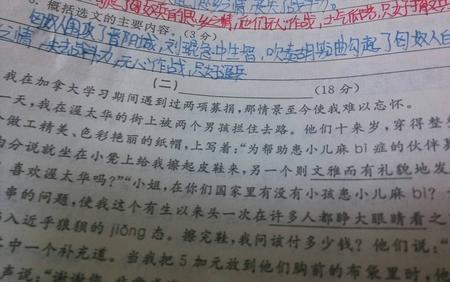 概括选文的主要内容。(3分)
匈奴人围攻了晋阳城,刘琨急中生智,吹奏胡笳曲勾起了匈奴人
之情,失去战斗力,无人作战,只好退兵
(二) (18分)
我在加拿大学习期间遇到过两项募捐,那情景至今使我难以忘怀。
一天,我在渥太华的街上被两个男孩拦住去路。他们十来岁,穿得整
个做工精美、色彩艳丽的纸帽,上写着:“为帮助患小儿麻bì症的伙伴
由分说就坐在小凳上给我擦起皮鞋来,另一个则文雅而有礼貌地发
喜欢渥太华吗?”“小姐,在你们国家里有没有小孩患小儿麻bì?
串的问题,使我这个有生以来头一次在许多人都睁大眼睛看之
入近乎狼狈的jiǒng态。擦完鞋,我问该付多少钱?他们说:“
中一个补充道。当我把5加元放到他们胸前的布袋里时,他
声说:“谢谢您